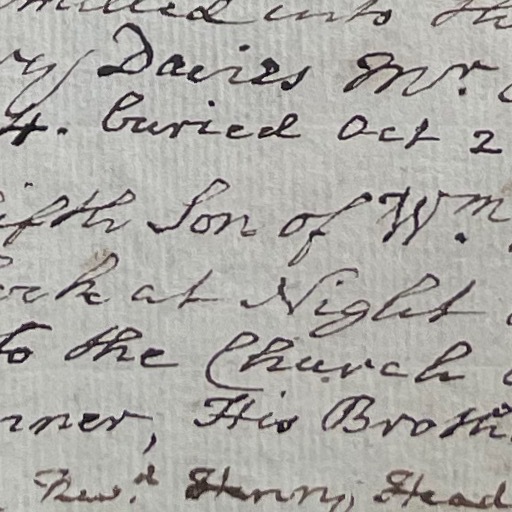 into th
ry Davies Mr.
4. buried Oct 2
ifth Son of Wm.
ock at Night
to the Church
nner, His Broth.
Rew.d Henry, Head